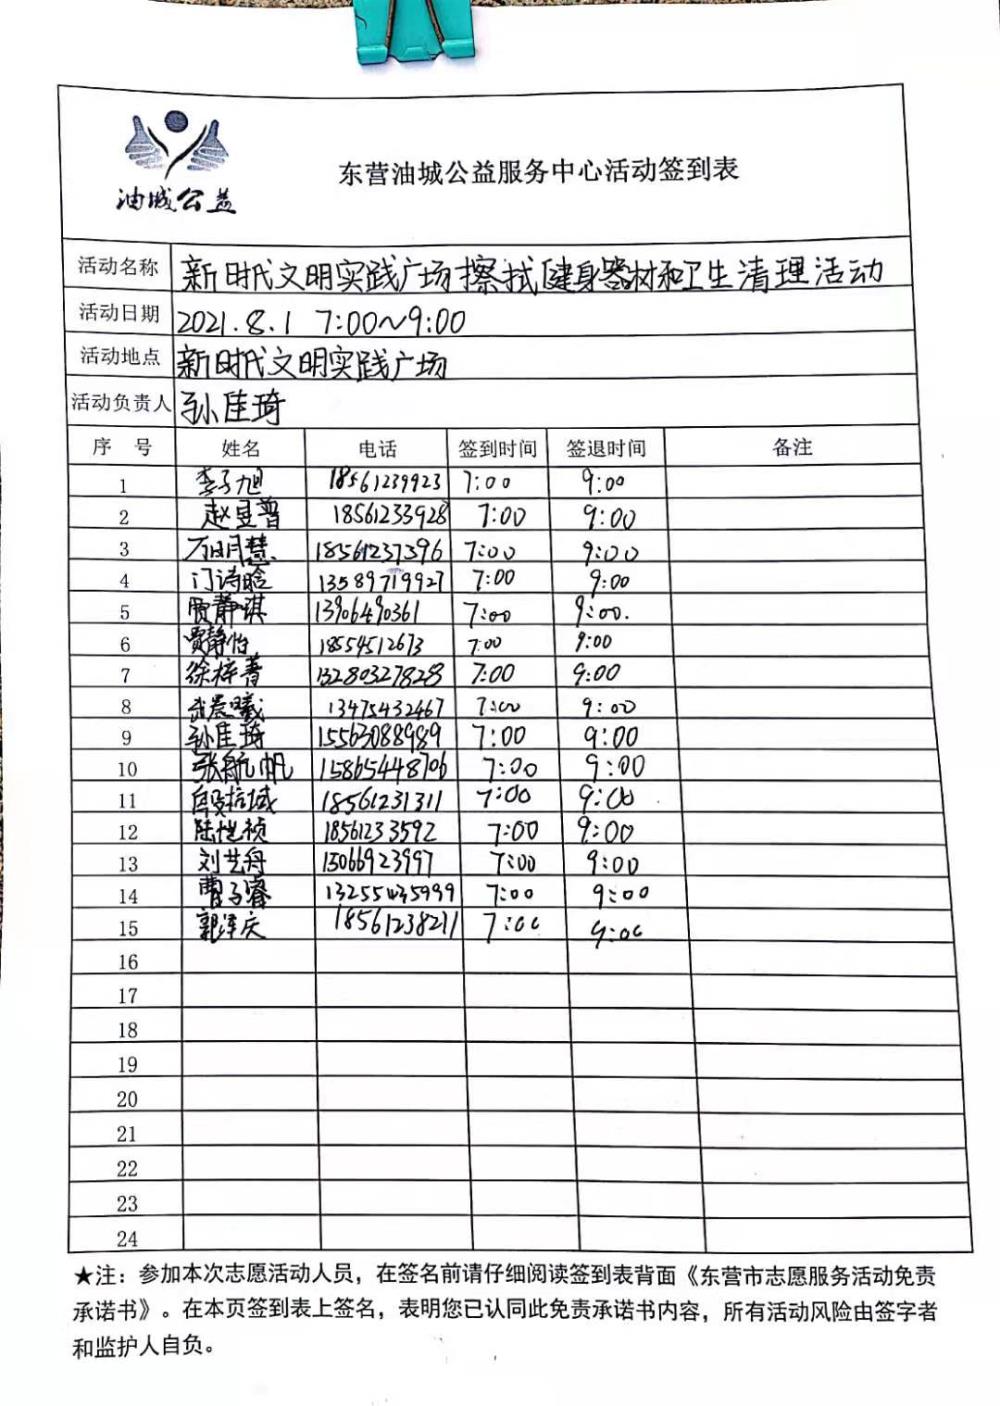 油城公益
东营油城公益服务中心活动签到表
活动名称 新时代文明实践广场擦拭健身器材和卫生清理活动
活动日期 2021.8.1 7:00~9:00
活动地点 新时代文明实践广场
活动负责人 孙佳琦
序 号 姓名 电话 签到时间 签退时间 备注
1 李子旭 18561239923 7:00 9:00
2 赵昱普 18561233928 7:00 9:00
3 石明慧 18561237396 7:00 9:00
4 门诗晗 13589719927 7:00 9:00
5 贾静琪 13906490361 7:00 9:00.
6 贾静怡 18554512673 7:00 9:00
7 徐梓菁 13280327828 7:00 9:00
8 武晨曦 13475432467 7:00 9:00
9 孙佳琦 15563088989 7:00 9:00
10 张航帆 15865448706 7:00 9:00
11 18561231311 7:00 9:00
12 18561233592 7:00 9:00
13 刘艺舟 13066923997 7:00 9:00
14 曹子睿 7:00 9:00
15 郭泽庆 18561238211 7:00 9:00
16
17
18
19
20
21
22
23
24
★注：参加本次志愿活动人员，在签名前请仔细阅读签到表背面《东营市志愿服务活动免责
承诺书》。在本页签到表上签名，表明您已认同此免责承诺书内容，所有活动风险由签字者
和监护人自负。